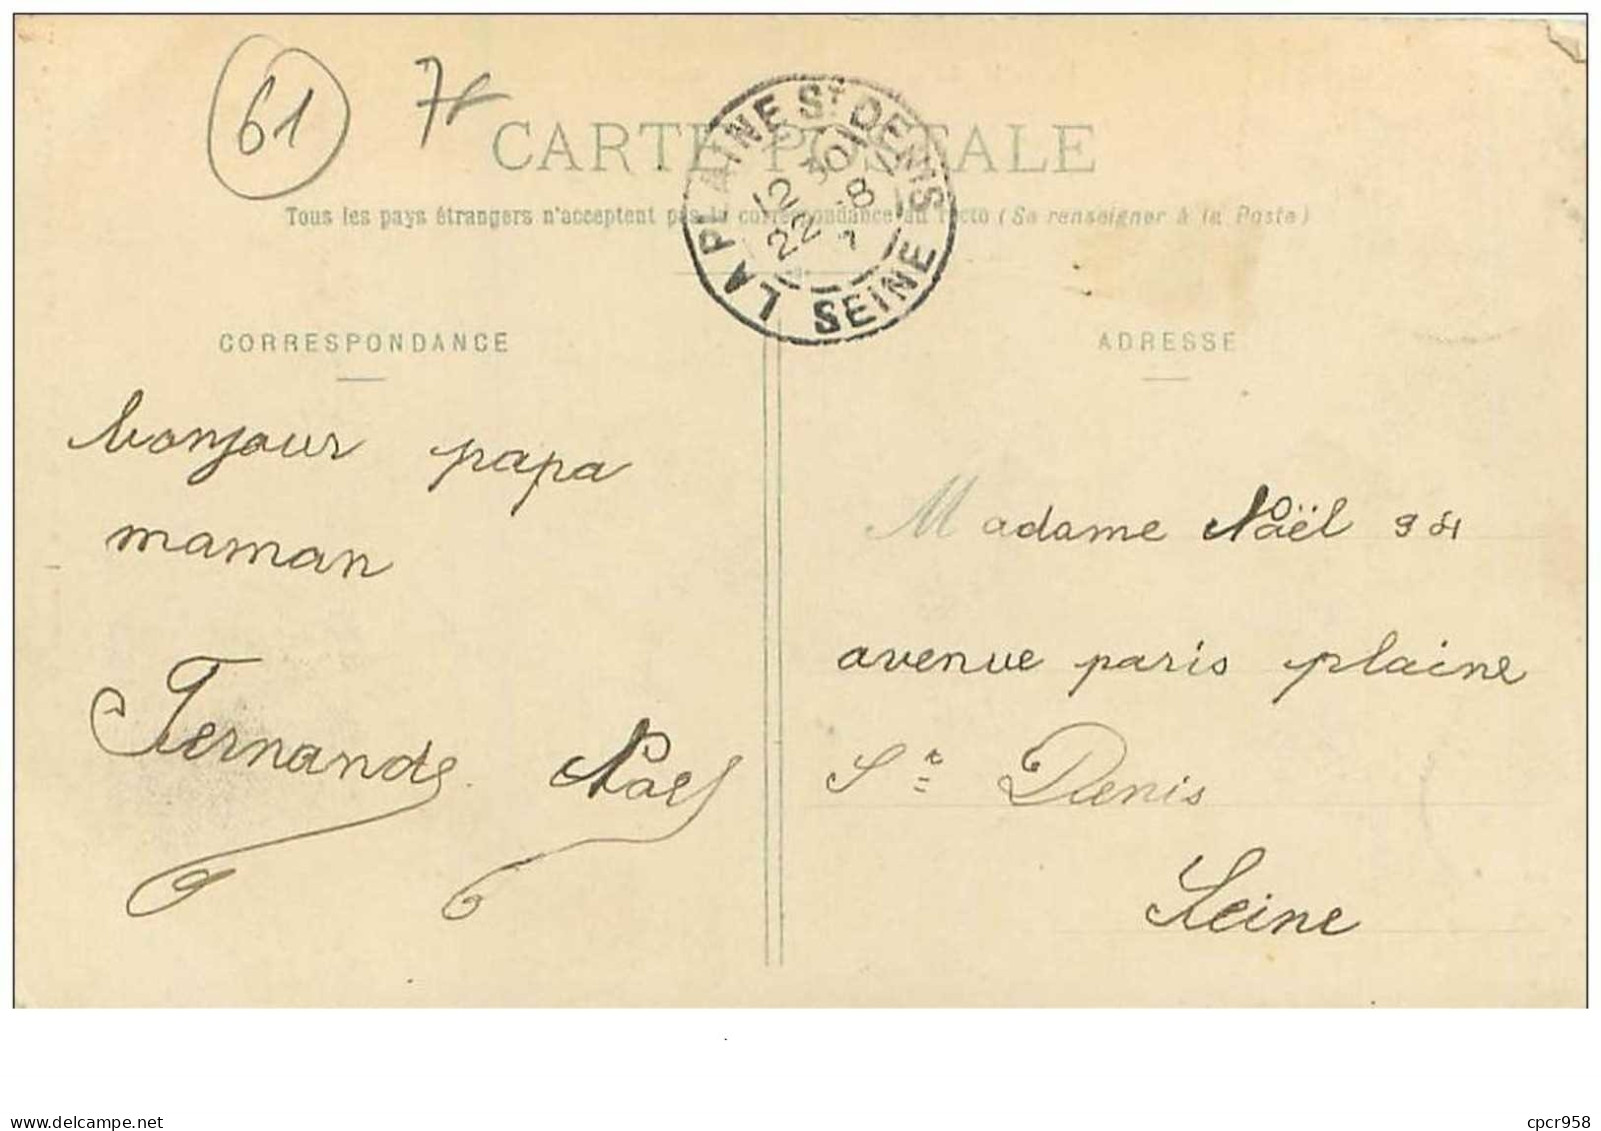 61
CARTE POSTALE
LA PLAINE ST DENIS
12 30
22 -8
7
SEINE
Tous les pays étrangers n'acceptent pas la correspondance au recto (Se renseigner à la Poste)
CORRESPONDANCE
bonjour papa
maman
Fernande Noël
ADRESSE
Madame Noël
avenue paris plaine
St Denis
Seine
www.delcampe.net
cpcr958